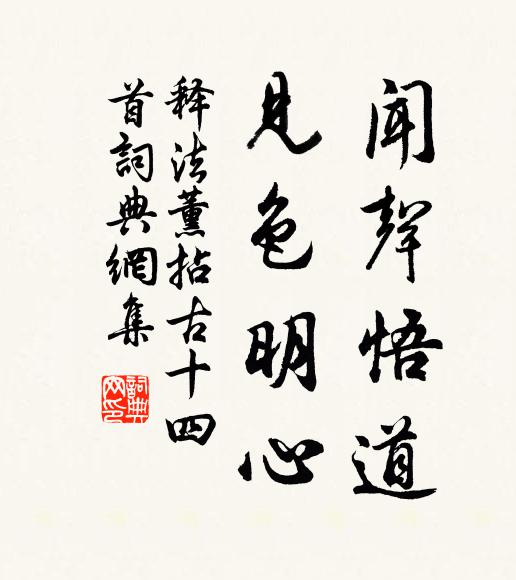 聞聲悟道
見色明心
释法薰拈古十四
首詞典網集
詞典
网印